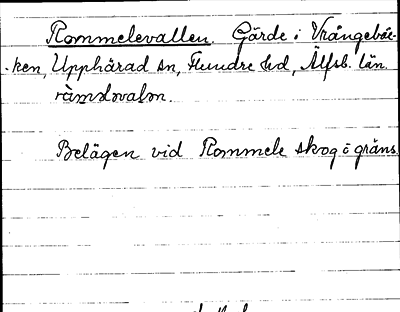 Rommelevallen. Gärde i Vrångebäc-
-ken, Upphärad sn, Flundre hd, Älfsb. län.
ràmələvalən.
Belägen vid Rommele skog o gräns